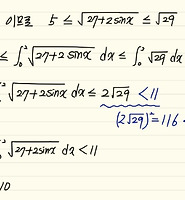 이므로 5 ≤ √(27+2sinx) ≤ √29
≤ ∫₀² √(27+2sinx) dx ≤ ∫₀² √29 dx
√(27+2sinx) dx ≤ 2√29 < 11
(2√29)² = 116
√(27+2sinx) dx < 11
10